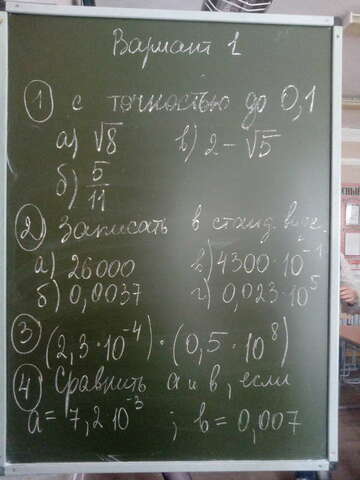 Вариант 1
① с точностью до 0,1
а) √8 в) 2 - √5
б) 5/11
② Записать в станд. виде.
а) 26000 в) 4300·10⁻¹
б) 0,0037 г) 0,023·10⁵
③ (2,3·10⁻⁴)·(0,5·10⁸)
④ Сравнить а и в, если
а = 7,2 10⁻³ ; в = 0,007